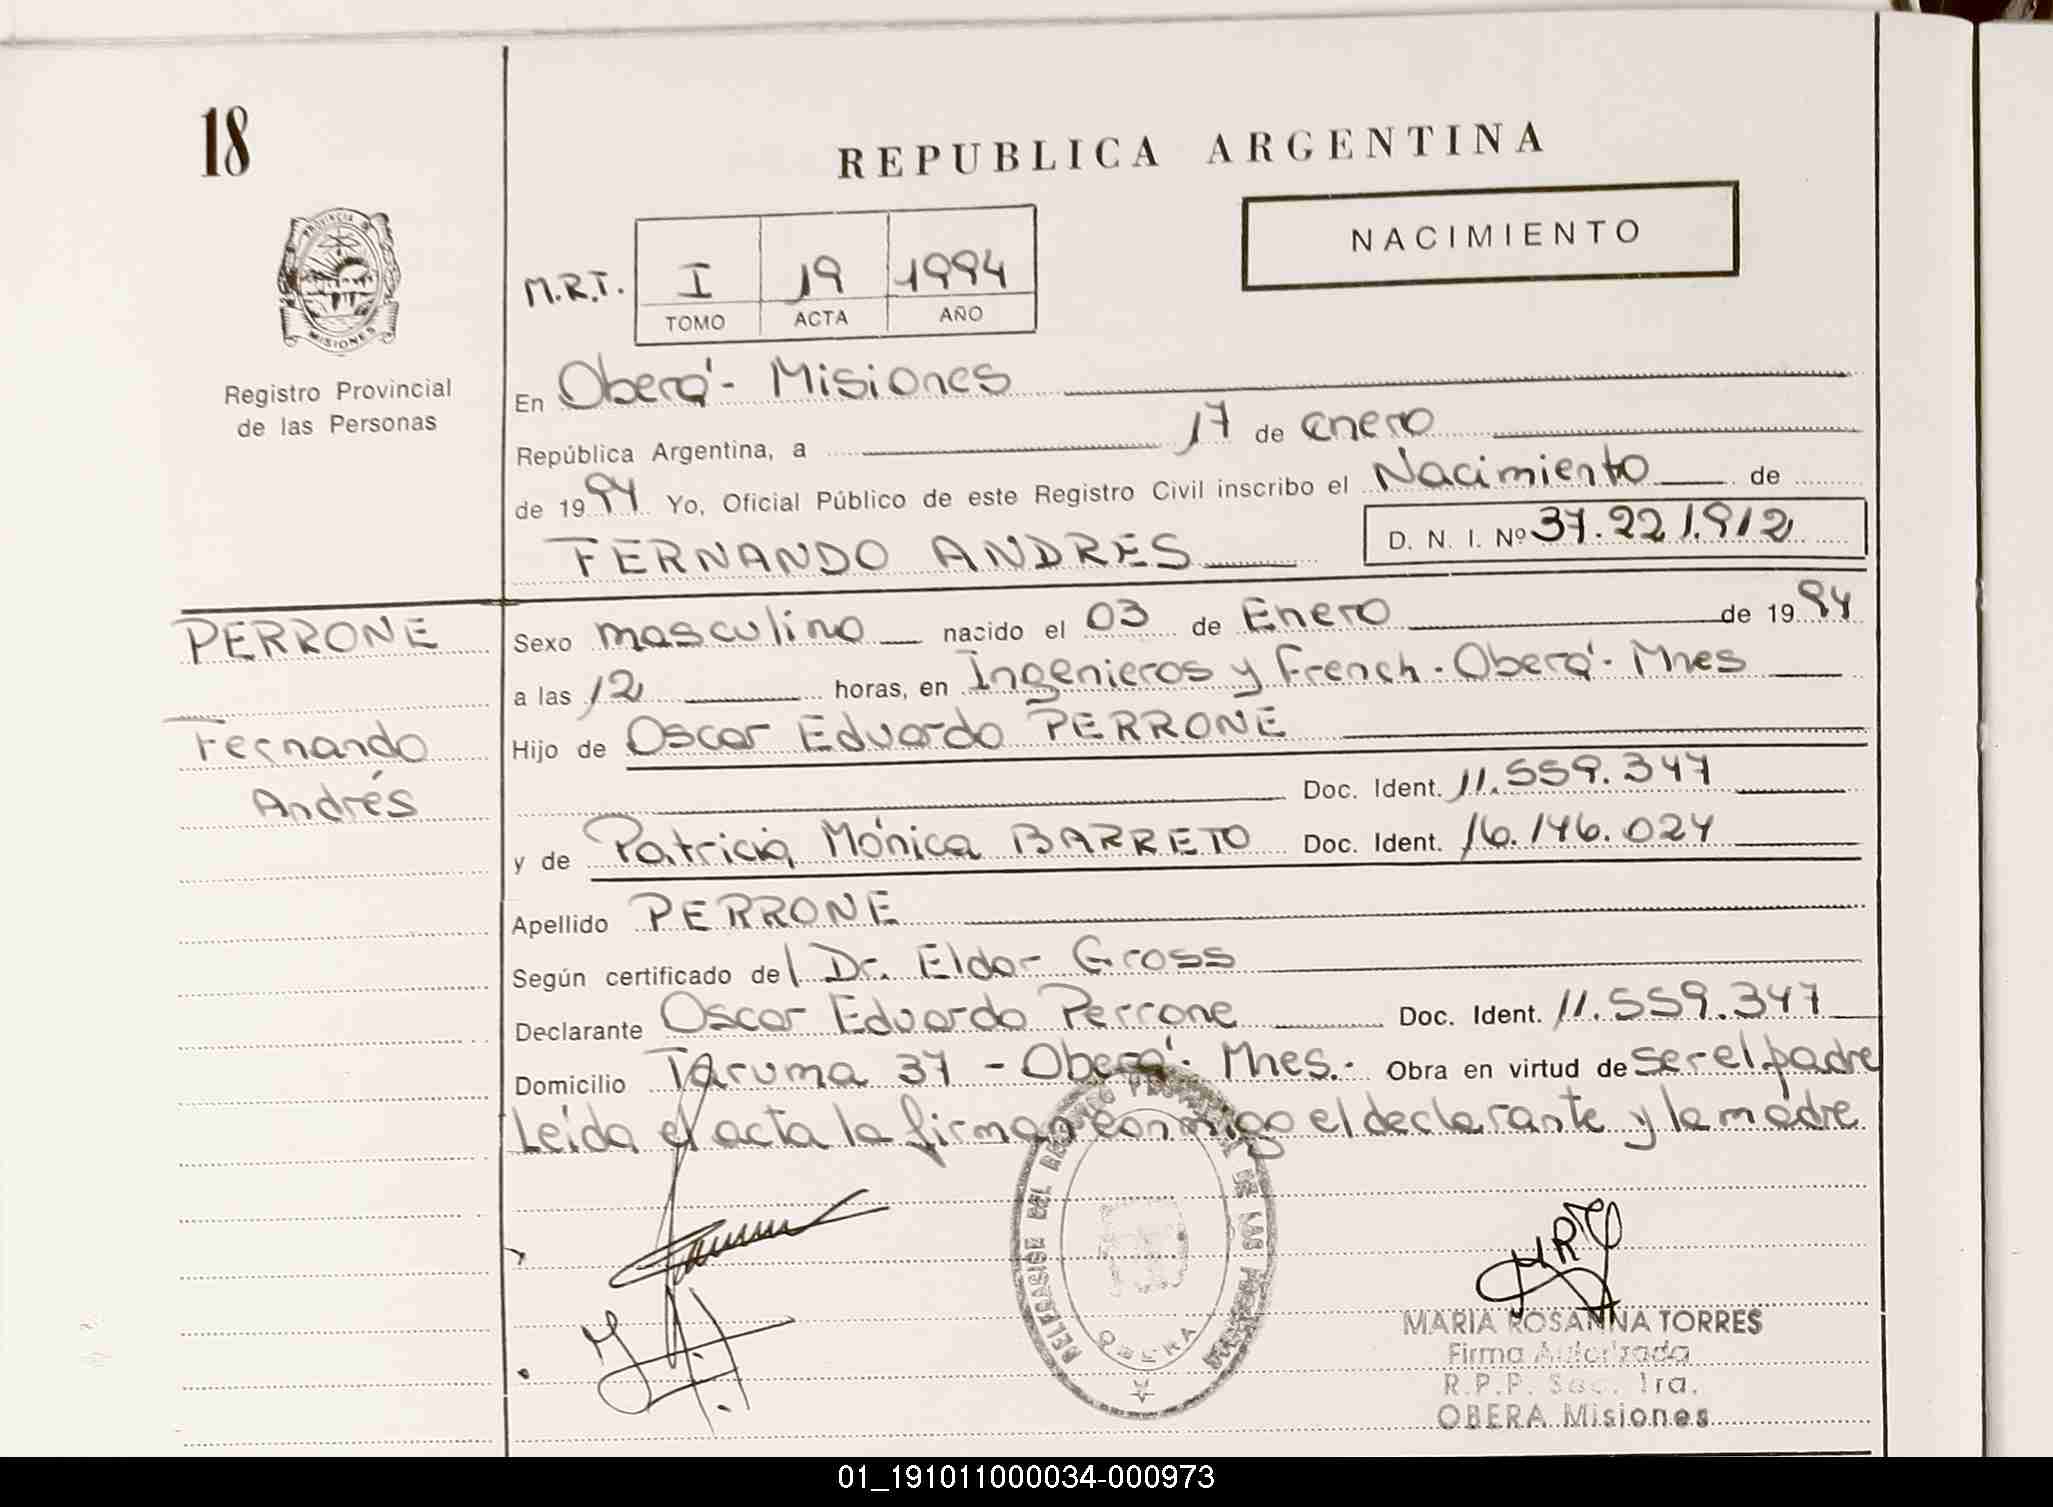 18
REPUBLICA ARGENTINA
NACIMIENTO
PROVINCIA DE
MISIONES
M.R.T. I 19 1994
TOMO ACTA AÑO
Registro Provincial
de las Personas
En Oberá - Misiones
República Argentina, a 17 de enero
de 1994 Yo, Oficial Público de este Registro Civil inscribo el Nacimiento de
FERNANDO ANDRES D. N. I. Nº 37.221.912
PERRONE
Fernando
Andrés
Sexo masculino nacido el 03 de Enero de 1994
a las 12 horas, en Ingenieros y French - Oberá - Mnes
Hijo de Oscar Eduardo PERRONE
Doc. Ident. 11.559.347
y de Patricia Mónica BARRETO Doc. Ident. 16.146.024
Apellido PERRONE
Según certificado del Dr. Eldor Gross
Declarante Oscar Eduardo Perrone Doc. Ident. 11.559.347
Domicilio Taruma 37 - Oberá - Mnes.- Obra en virtud de ser el padre
Leida el acta la firman conmigo el declarante y la madre
DE LAS
OBERA
MARIA ROSANNA TORRES
Firma Autorizada
R.P.P. Sec. 1ra.
OBERA Misiones
01_191011000034-000973